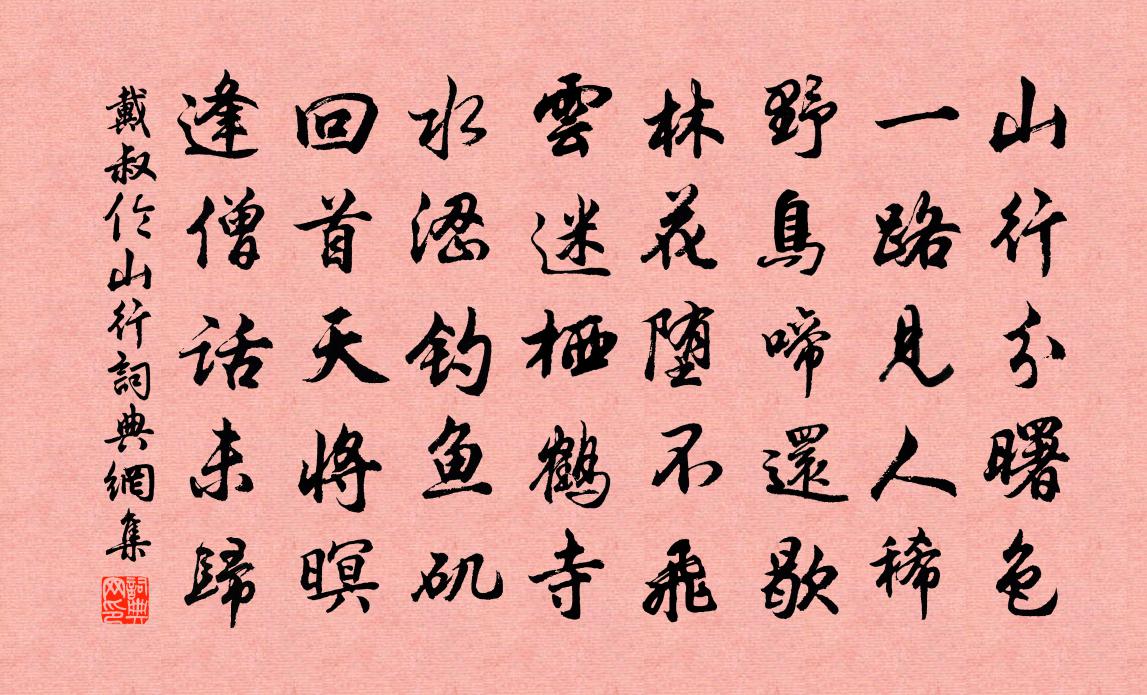 山行分曙色
一路見人稀
野鳥啼還歇
林花堕不飛
雲迷栖鶴寺
水涩釣鱼矶
回首天將暝
逢僧話未歸
戴叔伦山行詞典網集
詞典网印